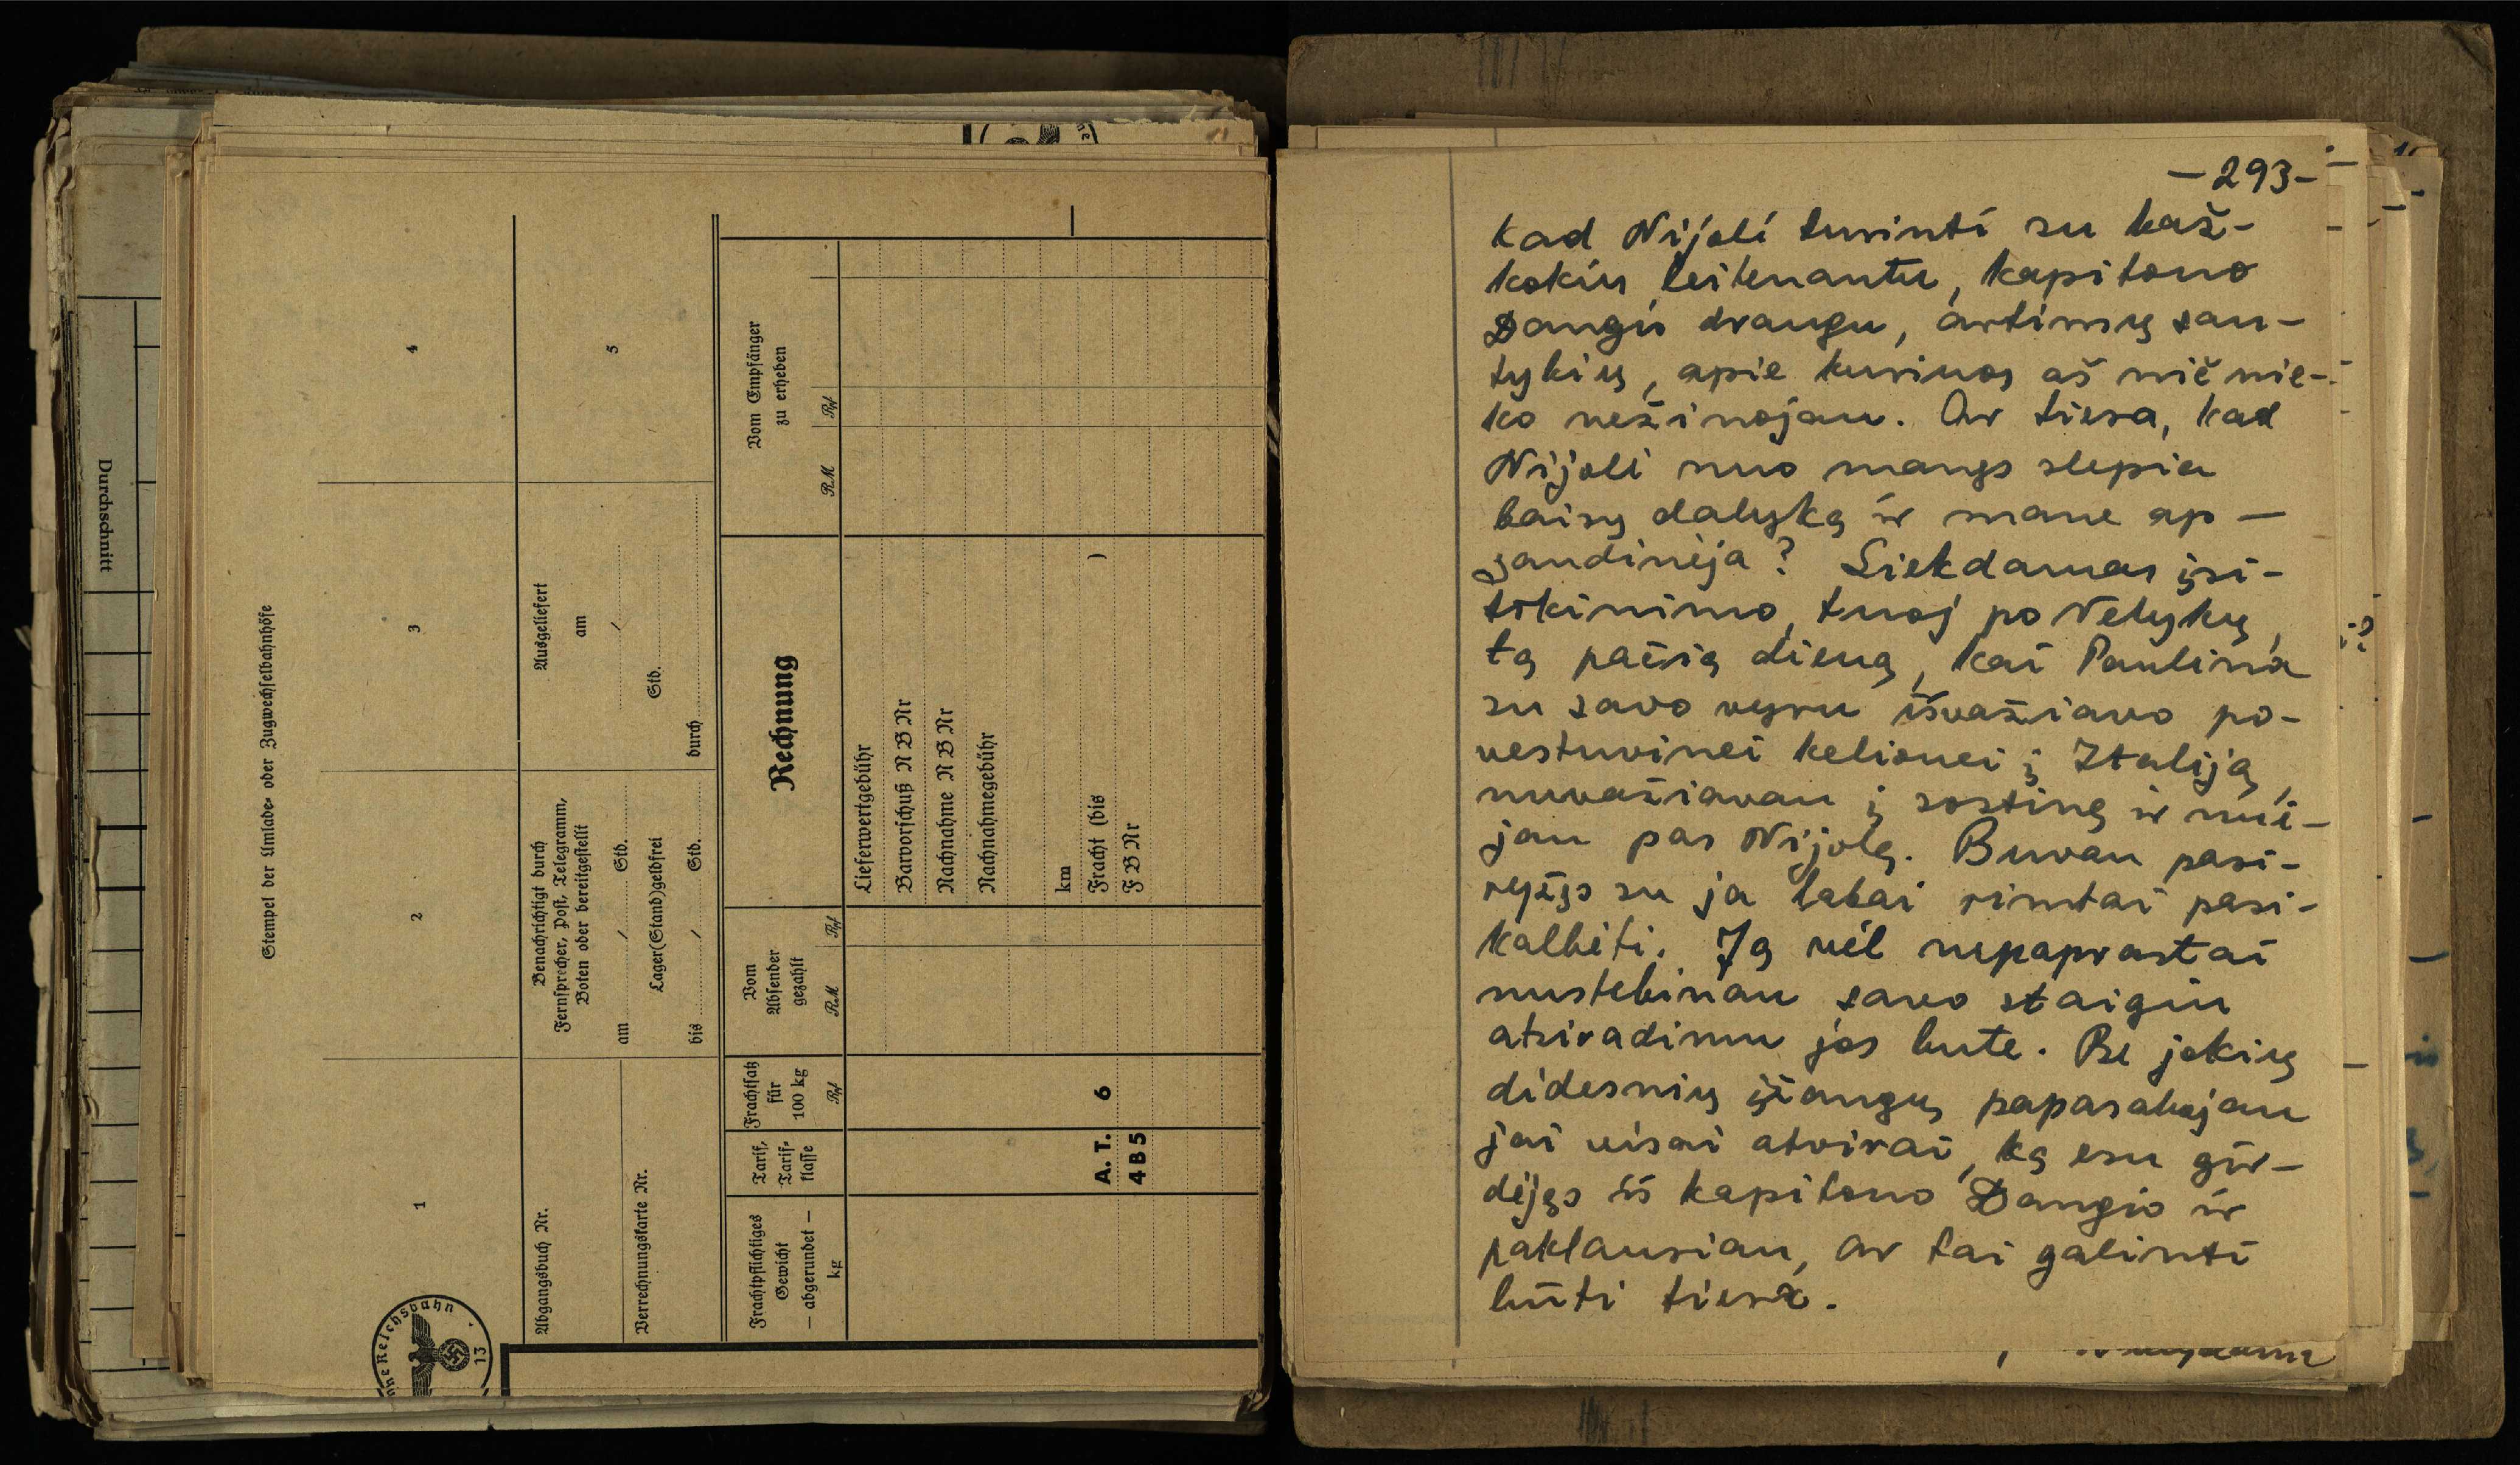 Durchschnitt
Stempel der Umlade- oder Zugwechselbahnhöfe
1
2
3
4
5
Abgangsbuch Nr.
Verrechnungskarte Nr.
Benachrichtigt durch
Fernsprecher, Post, Telegramm,
Boten oder bereitgestellt
am / Std.
Lager(Stand)geldfrei
bis / Std.
Ausgeliefert
am
/
Std.
durch
Frachtpflichtiges
Gewicht
— abgerundet —
kg
Tarif,
Tarif-
klasse
Frachtsatz
für
100 kg
Rpf
Vom
Absender
gezahlt
RM Rpf
Rechnung
Vom Empfänger
zu erheben
RM Rpf
Lieferwertgebühr
Barvorschuß N B Nr
Nachnahme N B Nr
Nachnahmegebühr
km
A. T. 6 Fracht (bis )
4 B 5 F B Nr
13
—293—
kad Nijolė turinti su kaž-
kokiu leitenantu, kapitono
Dangio draugu, artimų san-
tykių, apie kuriuos aš nič nie-
ko nežinojau. Ar tiesa, kad
Nijolė nuo manęs slepia
baisų dalyką ir mane ap—
gaudinėja? Siekdamas įsi-
tikinimo, tuoj po Velykų,
tą pačią dieną, kai Paulina
su savo vyru išvažiavo po-
vestuvinei kelionei į Italiją,
nuvažiavau į sostinę ir nuė-
jau pas Nijolę. Buvau pasi-
ryžęs su ja labai rimtai pasi-
kalbėti. Ją vėl nepaprastai
nustebinau savo staigiu
atsiradimu jos bute. Be jokių
didesnių įžangų papasakojau
jai visai atvirai, ką esu gir-
dėjęs iš kapitono Dangio ir
paklausiau, ar tai galinti
būti tiesa.